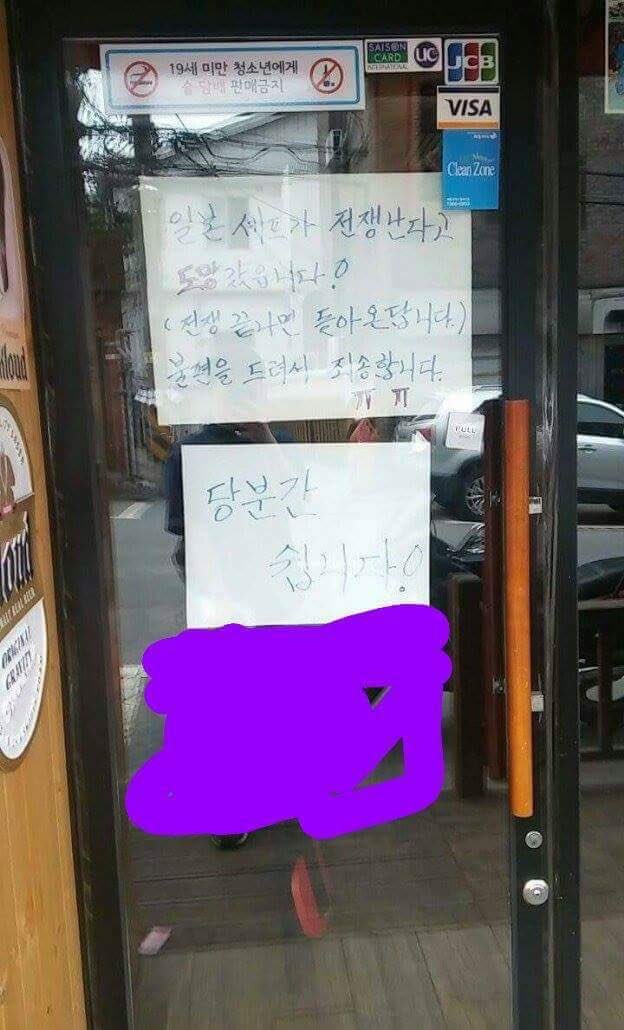 19세 미만 청소년에게
술·담배 판매금지
SAISON
CARD
INTERNATIONAL
UC
JCB
VISA
Clean Zone
일본 셰프가 전쟁난다고
도망갔읍니다!
(전쟁 끝나면 돌아온답니다.)
불편을 드려서 죄송합니다.
ㅠ ㅠ
PULL
당분간
쉽니다!
ORIGINAL
GRAVITY